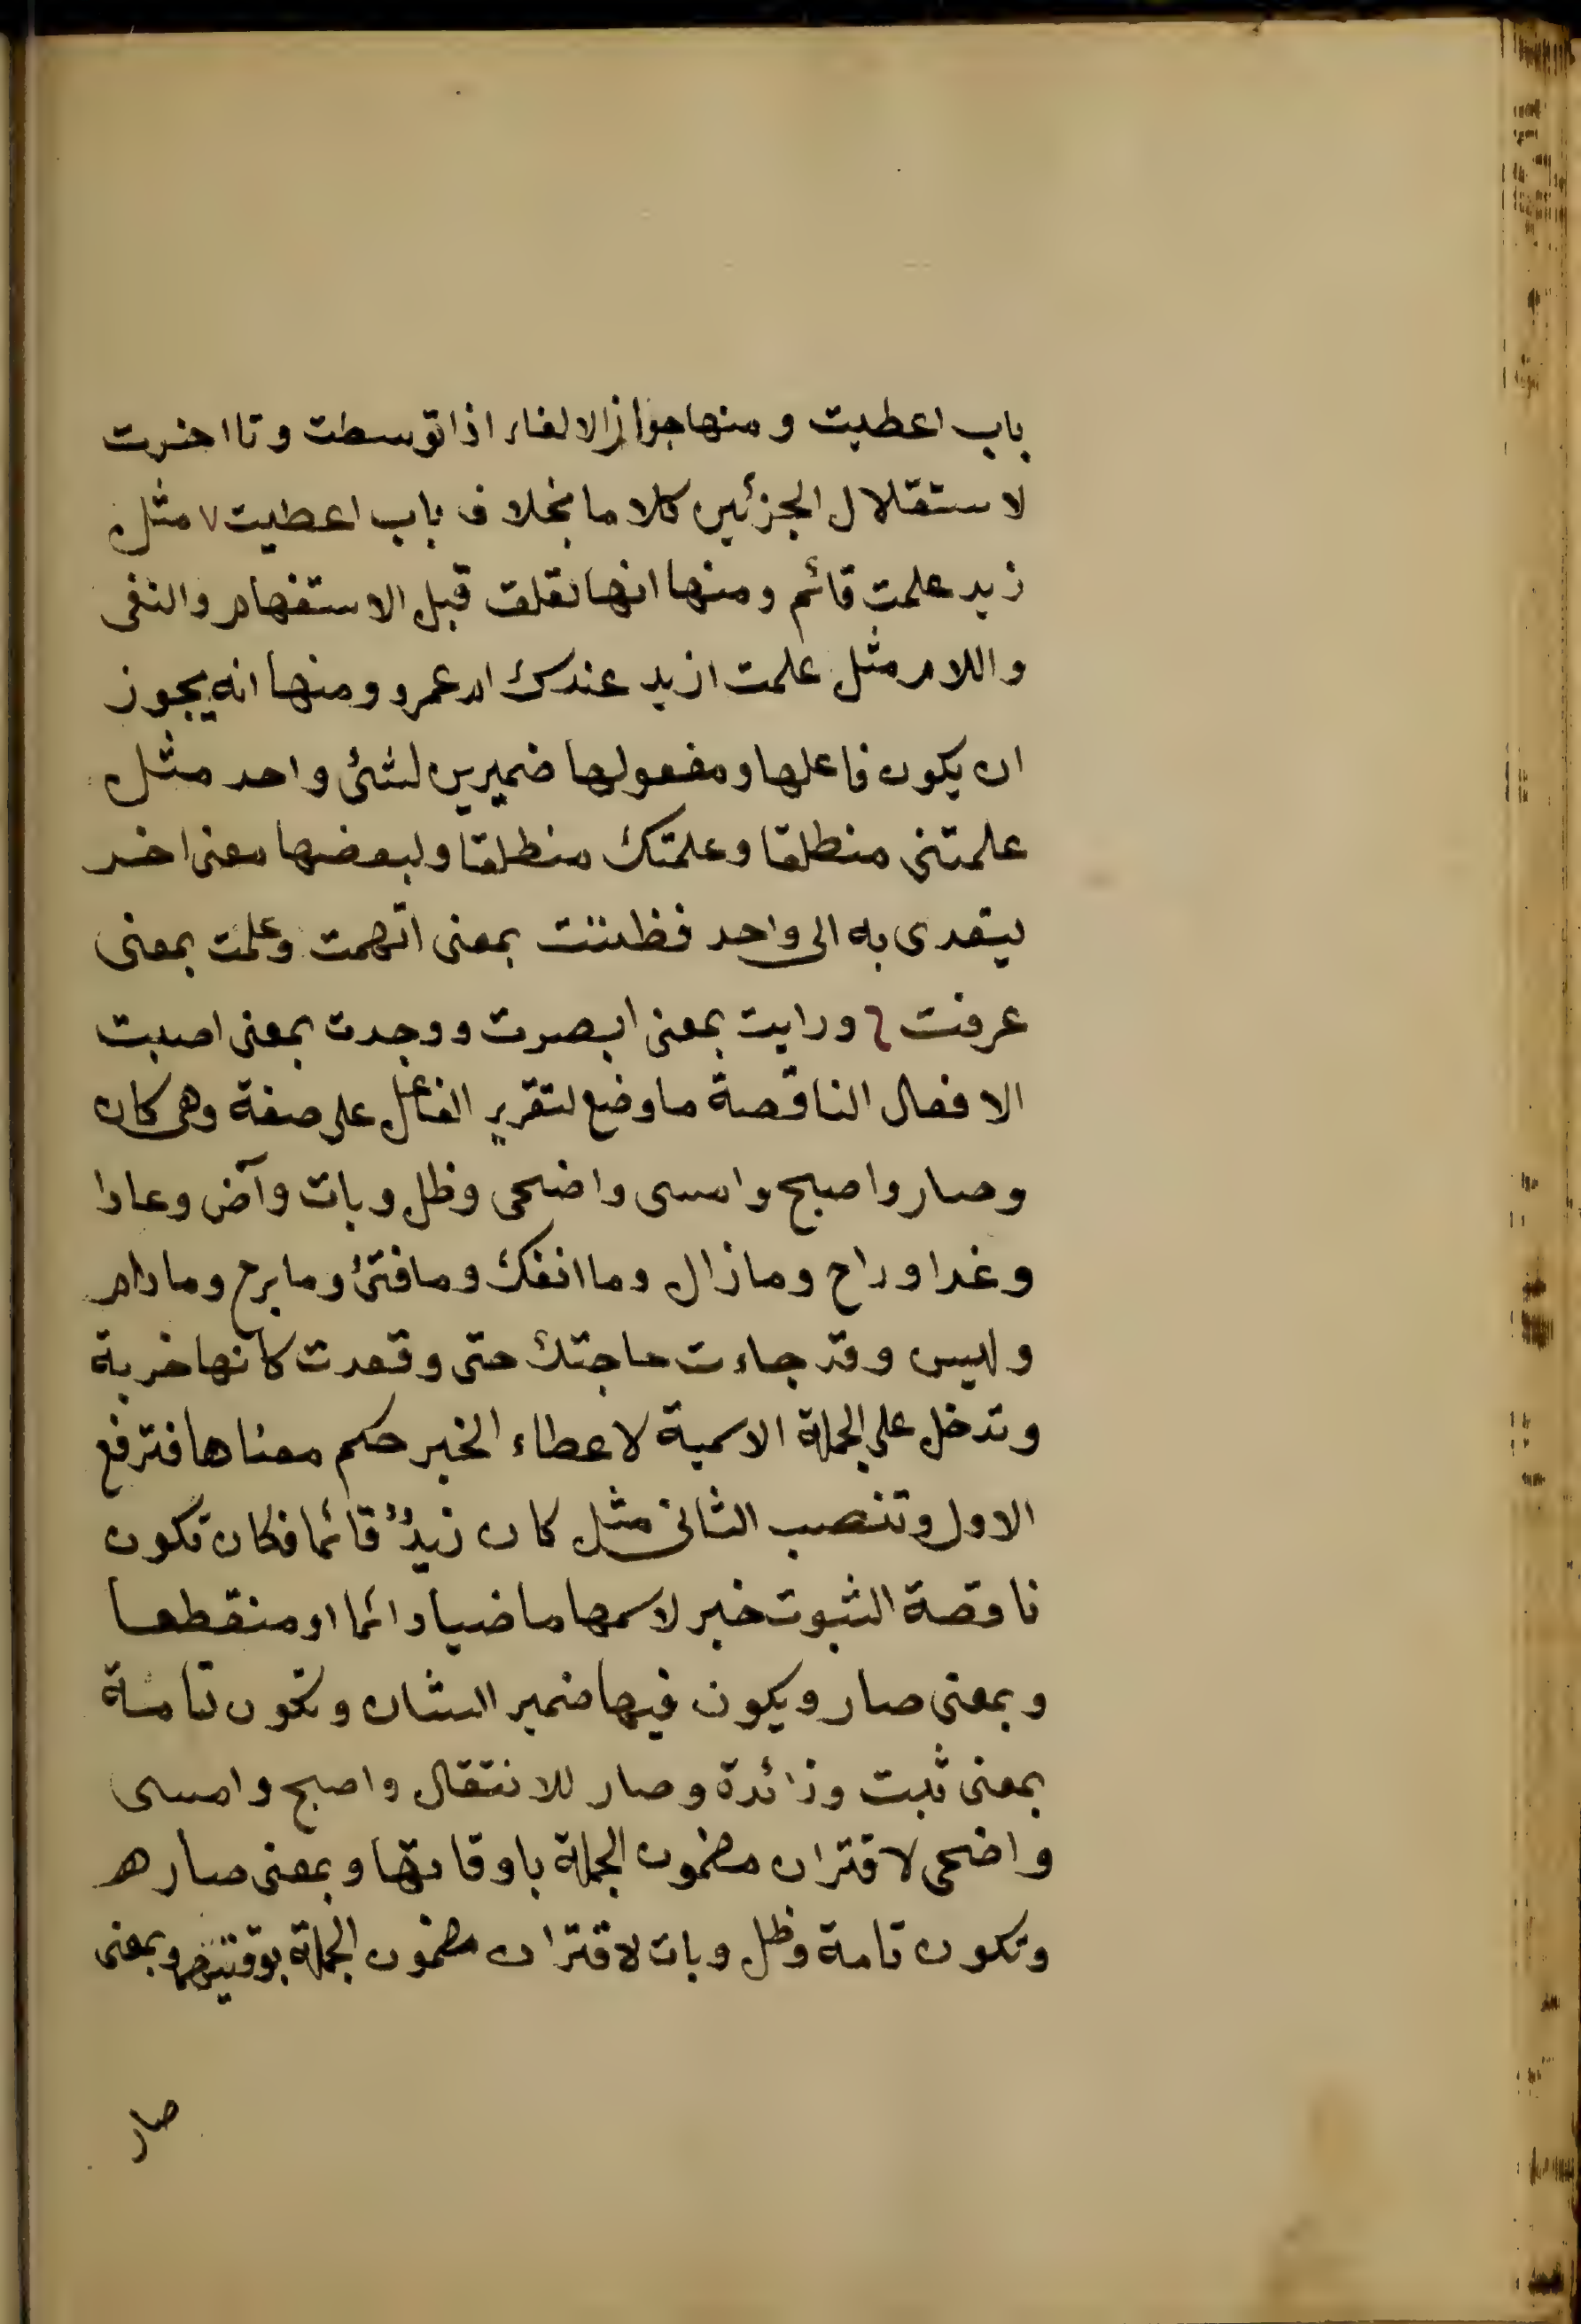 باب اعطيت ومنها جواز الالغاء اذا توسطت وتااخرت
لاستقلال الجزئين كلاما بخلاف باب اعطيت مثل
زيد علمت قائم ومنها انها تعلق قبل الاستفهام والنفى
واللام مثل علمت ازيد عندك ام عمرو ومنها انه يجوز
ان يكون فاعلها ومفعولها ضميرين لشئ واحد مثل
علمتنى منطلقا وعلمتك منطلقا ولبعضها معنى اخر
يتعدى به الى واحد فظننت بمعنى اتهمت وعلمت بمعنى
عرفت ورايت بمعنى ابصرت ووجدت بمعنى اصبت
الافعال الناقصة ما وضع لتقرير الفاعل على صفة وهى كان
وصار واصبح وامسى واضحى وظل وبات وآض وعادا
وغدا وراح ومازال وما انفك ومافتئ ومابرح ومادام
وليس وقد جاءت حاجتك حتى وقعدت كانها خربة
وتدخل على الجملة الاسمية لاعطاء الخبر حكم معناها فترفع
الاول وتنصب الثانى مثل كان زيدٌ قائما فكان تكون
ناقصة الثبوت خبر لاسمها ماضيا دائما او منقطعا
وبمعنى صار ويكون فيها ضمير الشان وتكون تامة
بمعنى ثبت وزائدة وصار للانتقال واصبح وامسى
واضحى لاقتران مضمون الجملة باوقاتها وبمعنى صار هـ
وتكون تامة وظل وبات لاقتران مضمون الجملة بوقتيهما وبمعنى
صار